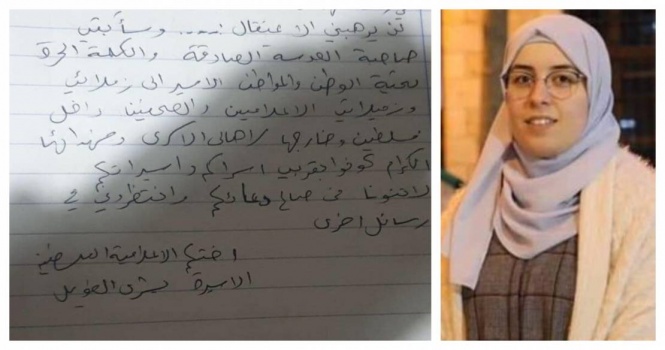 لن يرهبني الاعتقال ..... وسأبقى
صاحبة العدسة الصادقة والكلمة الحرة
تحية الوطن والمواطن الاسير الى زملائي
وزميلاتي الاعلاميين والصحفيين داخل
فلسطين وخارجها لاهالي الاسرى وشهدائها
الكرام كونوا بقرب اسراكم واسيراتكم
لا تنسونا من صالح دعائكم وانتظروني في
رسائل اخرى
اختكم الاعلامية الفلسطينية
الاسيرة بشرى الطويل